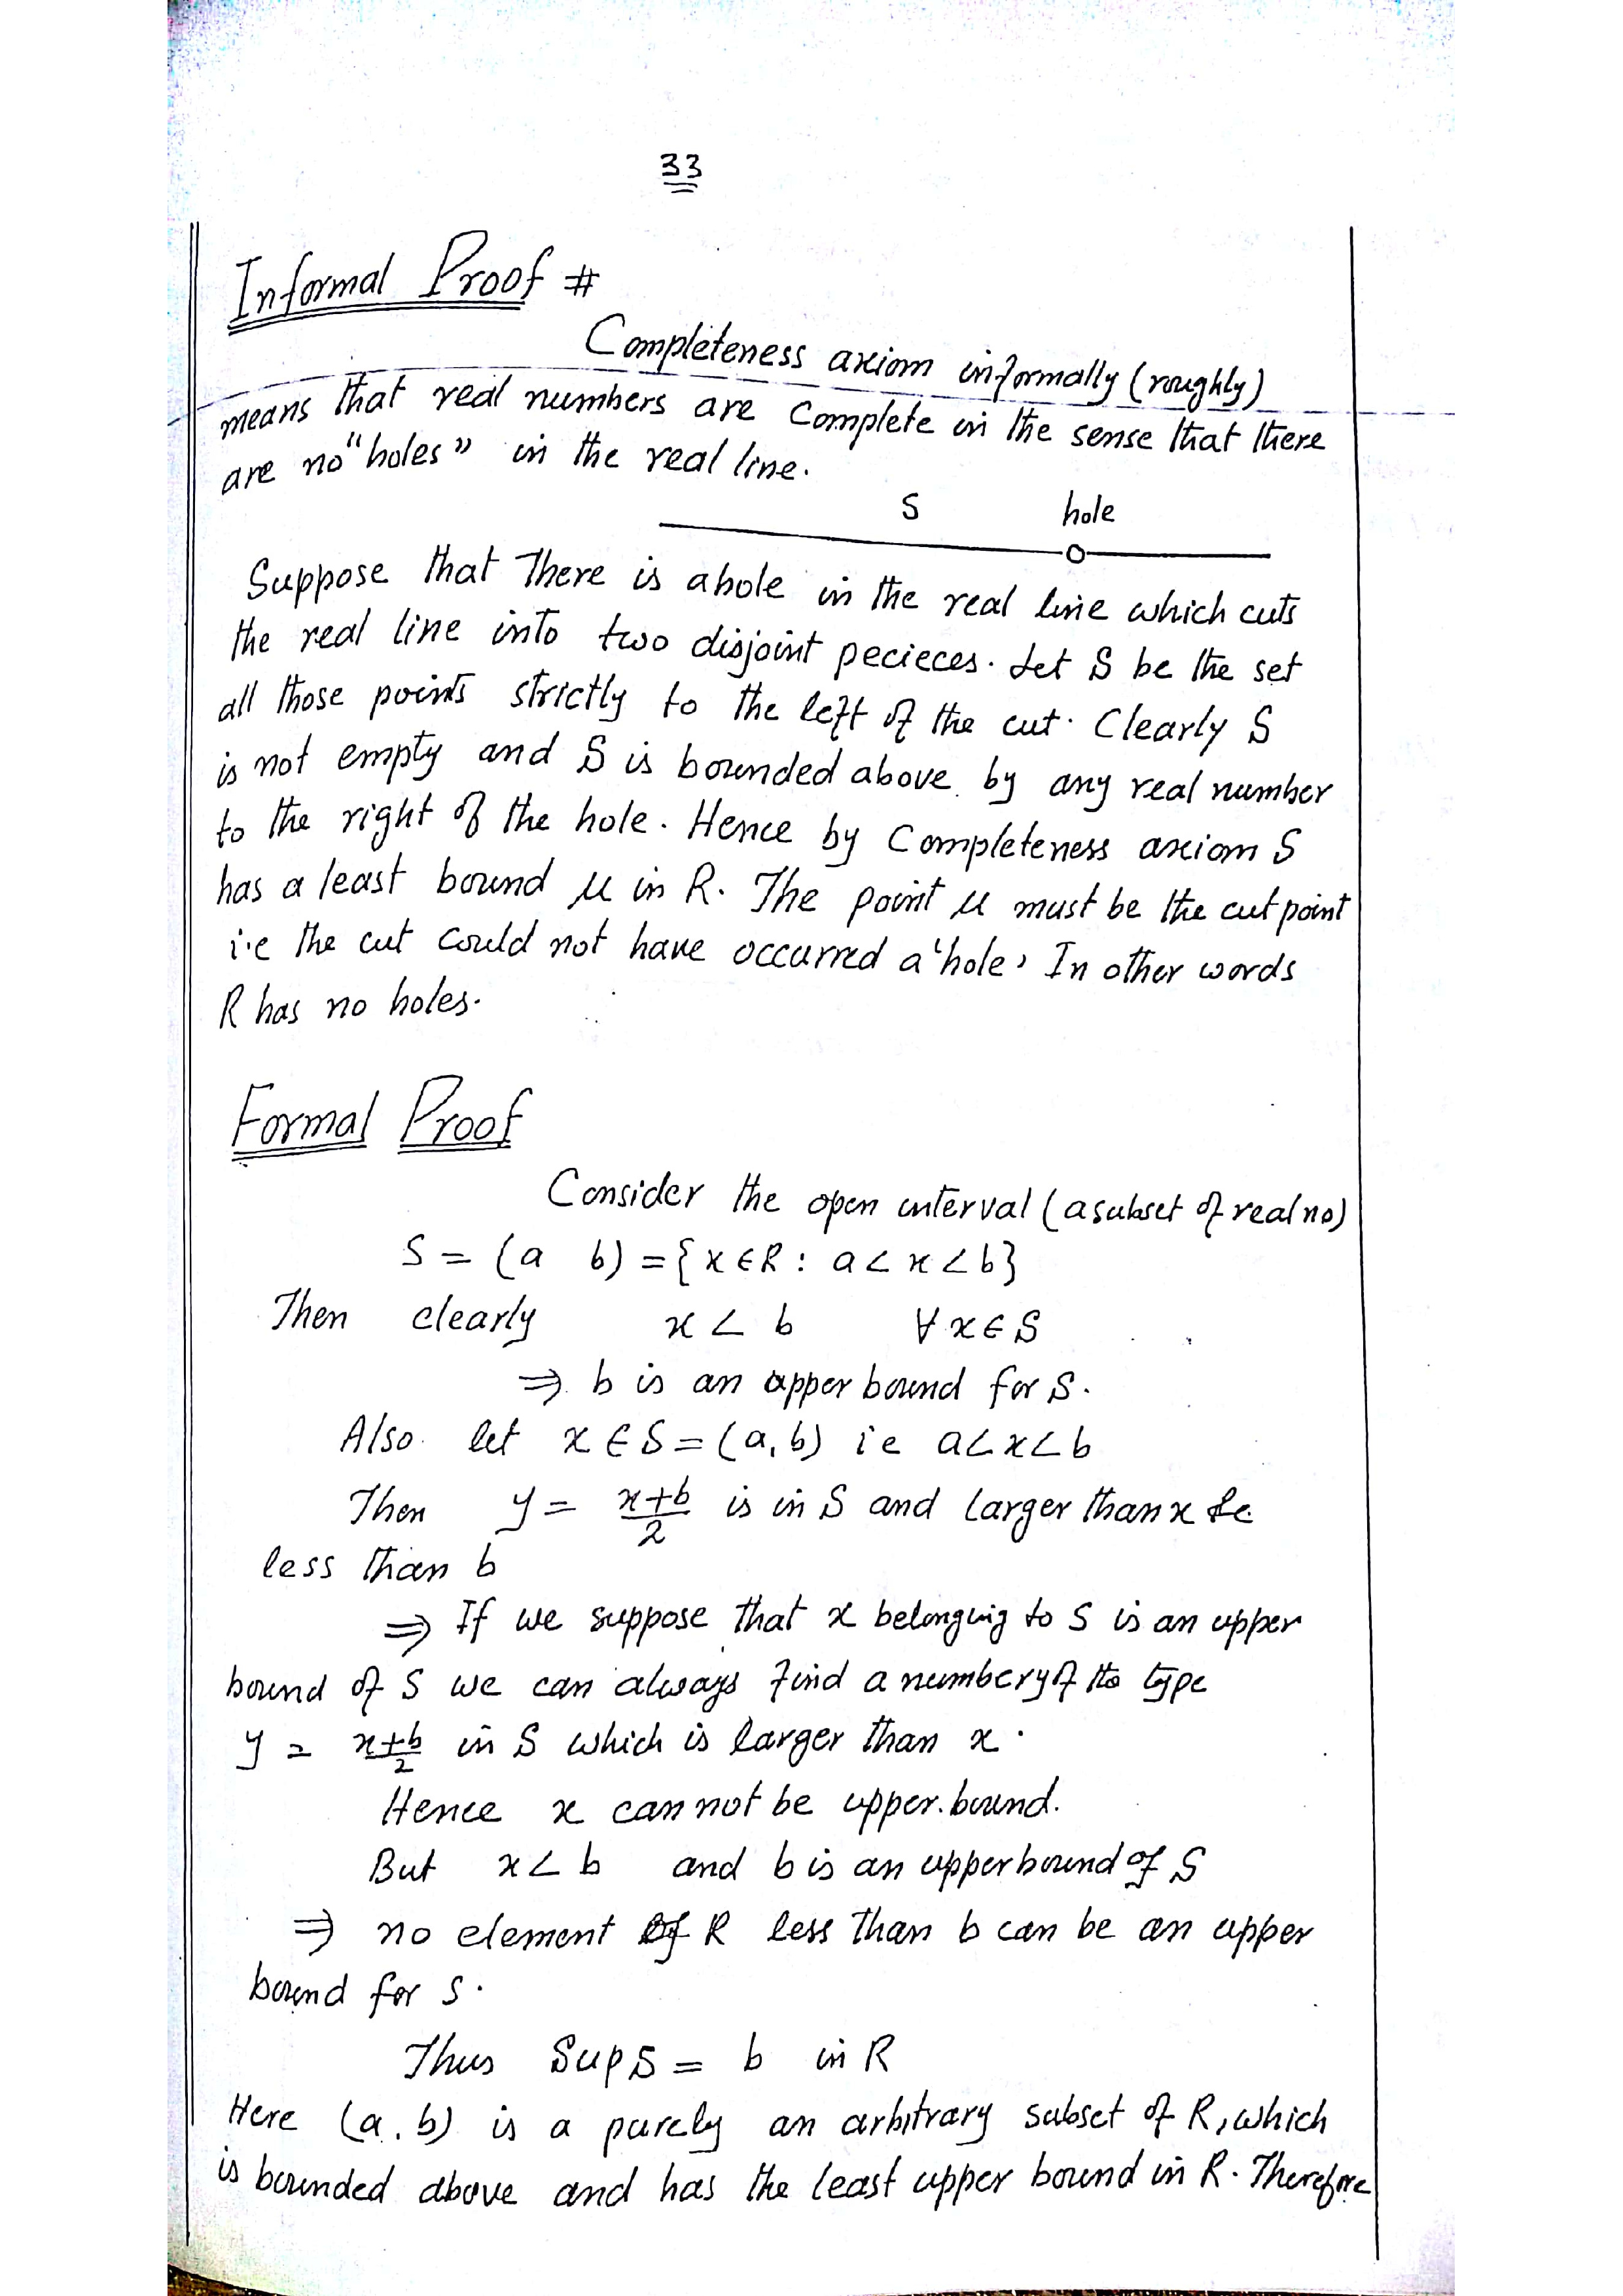 33
Informal Proof #
Completeness axiom informally (roughly)
means that real numbers are Complete in the sense that there
are no "holes" in the real line.
S hole
Suppose that There is a hole in the real line which cuts
the real line into two disjoint pecieces. Let S be the set
all those points strictly to the left of the cut. Clearly S
is not empty and S is bounded above by any real number
to the right of the hole. Hence by Completeness axiom S
has a least bound u in R. The point u must be the cut point
i.e the cut could not have occurred a 'hole' In other words
R has no holes.
Formal Proof
Consider the open interval (a subset of real no)
S = (a b) = {x ∈ R : a < x < b}
Then clearly x < b ∀ x ∈ S
⇒ b is an upper bound for S.
Also let x ∈ S = (a, b) i e a < x < b
Then y = x+b/2 is in S and larger than x &
less than b
⇒ If we suppose that x belonging to S is an upper
bound of S we can always find a number y of the type
y = x+b/2 in S which is larger than x.
Hence x can not be upper bound.
But x < b and b is an upper bound of S
⇒ no element of R less than b can be an upper
bound for S.
Thus Sup S = b in R
Here (a, b) is a purely an arbitrary subset of R, which
is bounded above and has the least upper bound in R. Therefore